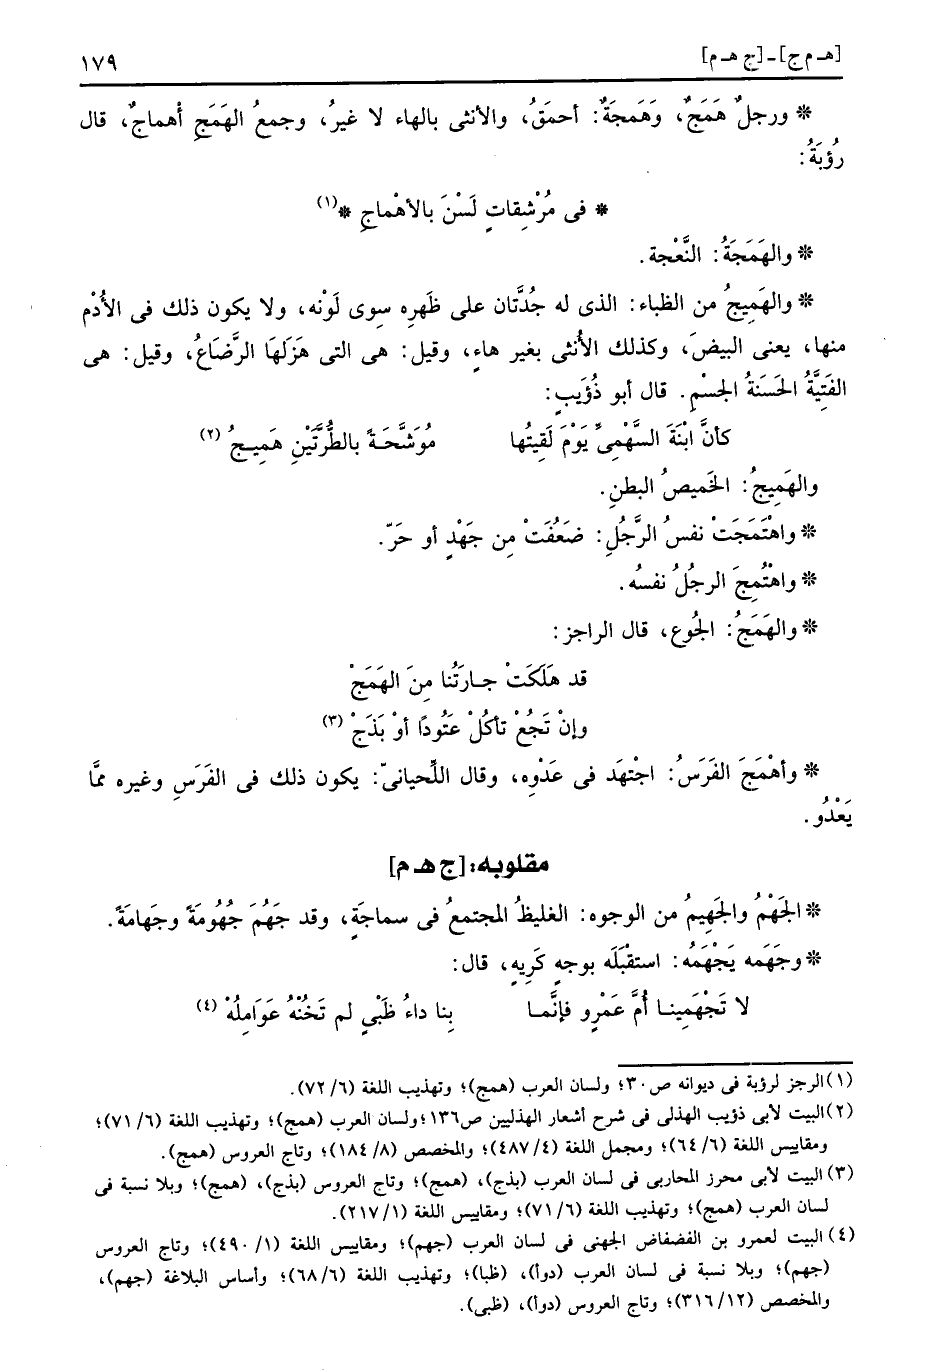 [هـ م ج] - [ج هـ م]
١٧٩
* ورجلٌ هَمَجٌ، وَهَمجةٌ: أحمقُ، والأنثى بالهاء لا غيرُ، وجمعُ الهَمَجِ أهْماجٌ، قال
رُؤبَةُ:
* فى مُرْشِقاتٍ لَسْنَ بالأهْماجِ *(١)
* والهَمَجَةُ: النَّعْجة.
* والهَمِيجُ من الظباء: الذى له جُدَّتان على ظَهرِه سِوى لَوْنه، ولا يكون ذلك فى الأدْم
منها، يعنى البيضَ، وكذلك الأُنثى بغير هاءٍ، وقيل: هى التى هَزَلَها الرَّضاعُ، وقيل: هى
الفَتِيَّةُ الحَسَنةُ الجسْمِ. قال أبو ذُؤَيبٍ:
كأنَّ ابْنَةَ السَّهْمِىِّ يَوْمَ لَقِيتُها مُوَشَّحَةً بالطُّرَّتَيْنِ هَمِيـجُ (٢)
والهَمِيجُ: الخَميصُ البطنِ.
* واهْتَمَجَتْ نفسُ الرَّجُلِ: ضَعُفَتْ مِن جَهْدٍ أو حَرّ.
* واهْتُمِجَ الرجلُ نفسُه.
* والهَمَجُ: الجُوع، قال الراجز:
قد هَلَكَتْ جـارَتُنا مِنَ الهَمَجْ
وإنْ تَجُعْ تأكُلْ عَتُودًا أوْ بَذَجْ (٣)
* وأهْمَجَ الفَرَسُ: اجْتهَد فى عَدْوِه، وقال اللِّحيانىّ: يكون ذلك فى الفَرَسِ وغيره ممَّا
يَعْدُو.
مقلوبه: [ج هـ م]
* الجَهْمُ والجَهِيمُ من الوجوه: الغليظُ المجتمعُ فى سماجَةٍ، وقد جَهُمَ جُهُومَةً وجَهامَةً.
* وجَهَمه يَجْهَمُه: استقْبَلَه بوجهٍ كَرِيهٍ، قال:
لا تَجْهَمِينـا أُمَّ عَمْرٍو فإنَّمـا بِنا داءُ ظَبْىٍ لم تَخُنْهُ عَوَامِلُهْ (٤)
(١) الرجز لرؤبة فى ديوانه ص٣٠؛ ولسان العرب (همج)؛ وتهذيب اللغة (٦/ ٧٢).
(٢) البيت لأبى ذؤيب الهذلى فى شرح أشعار الهذليين ص١٣٦؛ ولسان العرب (همج)؛ وتهذيب اللغة (٦/ ٧١)؛
ومقاييس اللغة (٦/ ٦٤)؛ ومجمل اللغة (٤/ ٤٨٧)؛ والمخصص (٨/ ١٨٤)؛ وتاج العروس (همج).
(٣) البيت لأبى محرز المحاربى فى لسان العرب (بذج)، (همج)؛ وتاج العروس (بذج)، (همج)؛ وبلا نسبة فى
لسان العرب (همج)؛ وتهذيب اللغة (٦/ ٧١)؛ ومقاييس اللغة (١/ ٢١٧).
(٤) البيت لعمرو بن الفضفاض الجهنى فى لسان العرب (جهم)؛ ومقاييس اللغة (١/ ٤٩٠)؛ وتاج العروس
(جهم)؛ وبلا نسبة فى لسان العرب (دوأ)، (ظبا)؛ وتهذيب اللغة (٦/ ٦٨)؛ وأساس البلاغة (جهم)،
والمخصص (١٢/ ٣١٦)؛ وتاج العروس (دوأ)، (ظبى).